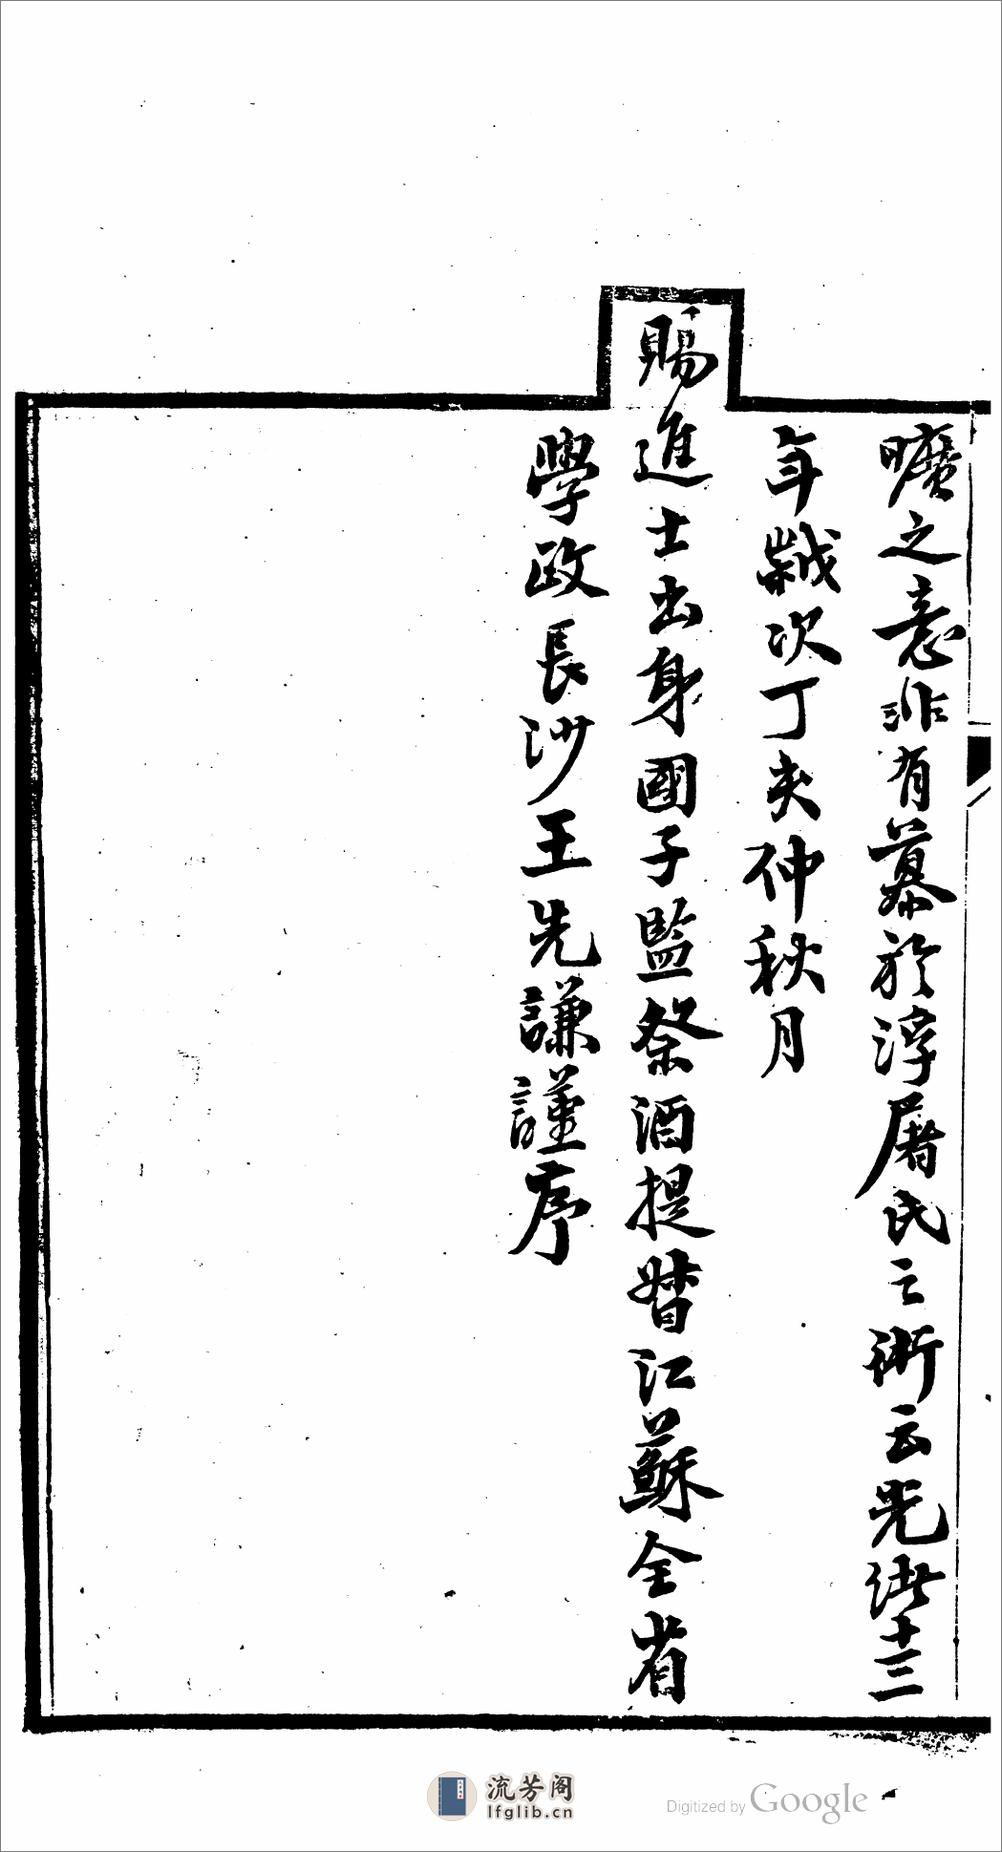 曠之意非有慕於浮屠氏之術云光緒十三
年歲次丁亥仲秋月
賜進士出身國子監祭酒提督江蘇全省
學政長沙王先謙謹序
流芳阁
lfglib.cn
Digitized by Google